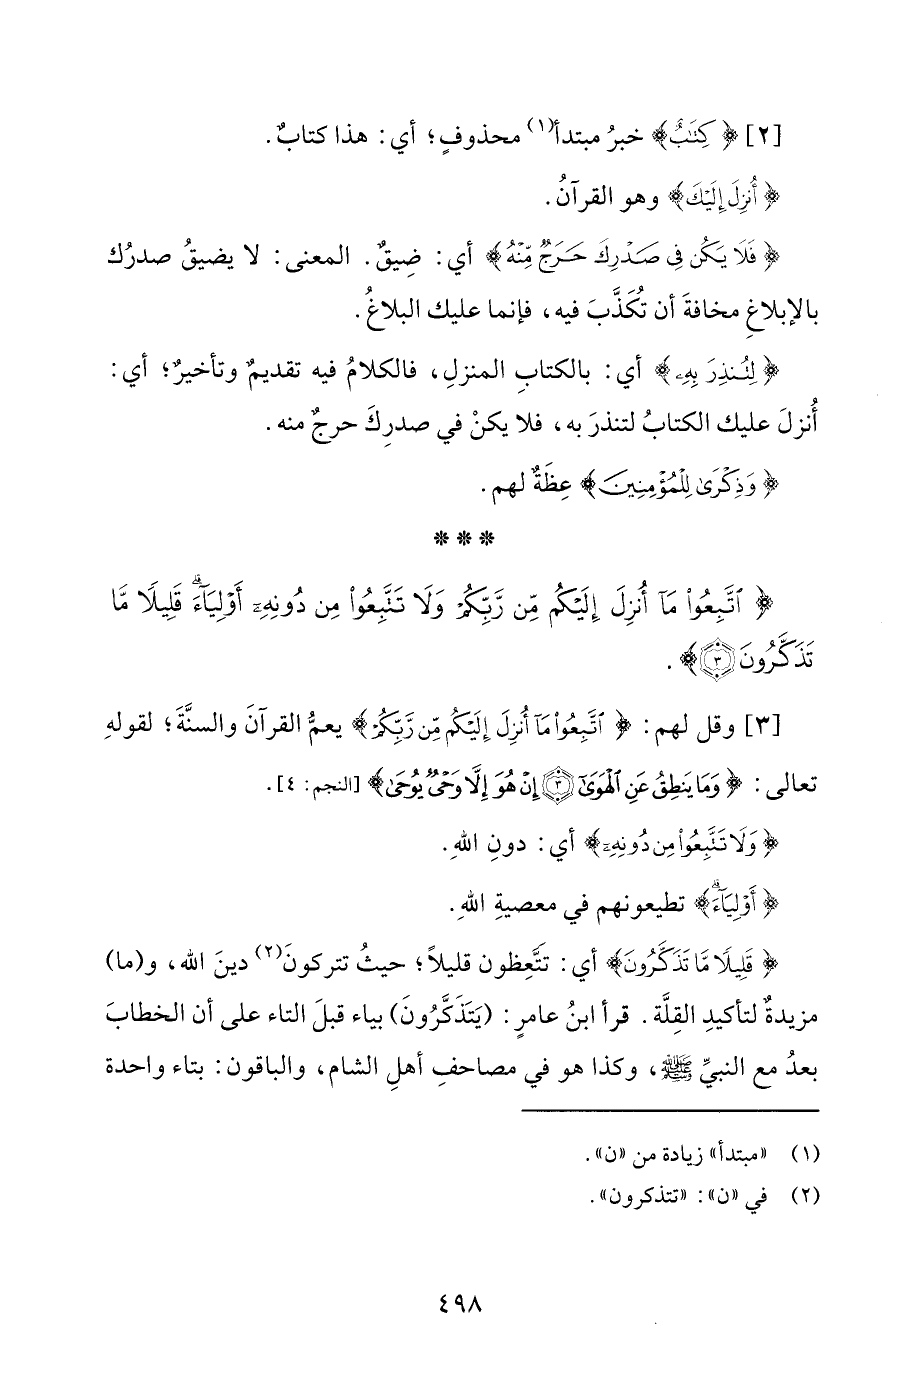 [٢] ﴿كِتَٰبٌ﴾ خبرُ مبتدأ(١) محذوفٍ؛ أي: هذا كتابٌ.
﴿أُنزِلَ إِلَيْكَ﴾ وهو القرآنُ.
﴿فَلَا يَكُن فِى صَدْرِكَ حَرَجٌ مِّنْهُ﴾ أي: ضِيقٌ. المعنى: لا يضيقُ صدرُك
بالإبلاغِ مخافةَ أن تُكَذَّبَ فيه، فإنما عليك البلاغُ.
﴿لِتُنذِرَ بِهِۦ﴾ أي: بالكتابِ المنزلِ، فالكلامُ فيه تقديمٌ وتأخيرٌ؛ أي:
أُنزلَ عليك الكتابُ لتنذرَ به، فلا يكنْ في صدرِكَ حرجٌ منه.
﴿وَذِكْرَىٰ لِلْمُؤْمِنِينَ﴾ عِظَةٌ لهم.
* * *
﴿ٱتَّبِعُوا۟ مَآ أُنزِلَ إِلَيْكُم مِّن رَّبِّكُمْ وَلَا تَتَّبِعُوا۟ مِن دُونِهِۦٓ أَوْلِيَآءَ ۗ قَلِيلًا مَّا
تَذَكَّرُونَ ٣﴾.
[٣] وقل لهم: ﴿ٱتَّبِعُوا۟ مَآ أُنزِلَ إِلَيْكُم مِّن رَّبِّكُمْ﴾ يعمُّ القرآنَ والسنَّةَ؛ لقولهِ
تعالى: ﴿وَمَا يَنطِقُ عَنِ ٱلْهَوَىٰٓ ٣ إِنْ هُوَ إِلَّا وَحْىٌ يُوحَىٰ﴾ [النجم: ٤].
﴿وَلَا تَتَّبِعُوا۟ مِن دُونِهِۦٓ﴾ أي: دونِ اللهِ.
﴿أَوْلِيَآءَ ۗ﴾ تطيعونهم في معصيةِ اللهِ.
﴿قَلِيلًا مَّا تَذَكَّرُونَ﴾ أي: تتَّعِظون قليلًا؛ حيثُ تتركونَ(٢) دينَ الله، و(ما)
مزيدةٌ لتأكيدِ القِلَّة. قرأ ابنُ عامرٍ: (يَتَذَكَّرُونَ) بياء قبلَ التاء على أن الخطابَ
بعدُ مع النبيِّ ﷺ، وكذا هو في مصاحفِ أهلِ الشام، والباقون: بتاء واحدة
(١) «مبتدأ» زيادة من «ن».
(٢) في «ن»: «تتذكرون».
٤٩٨